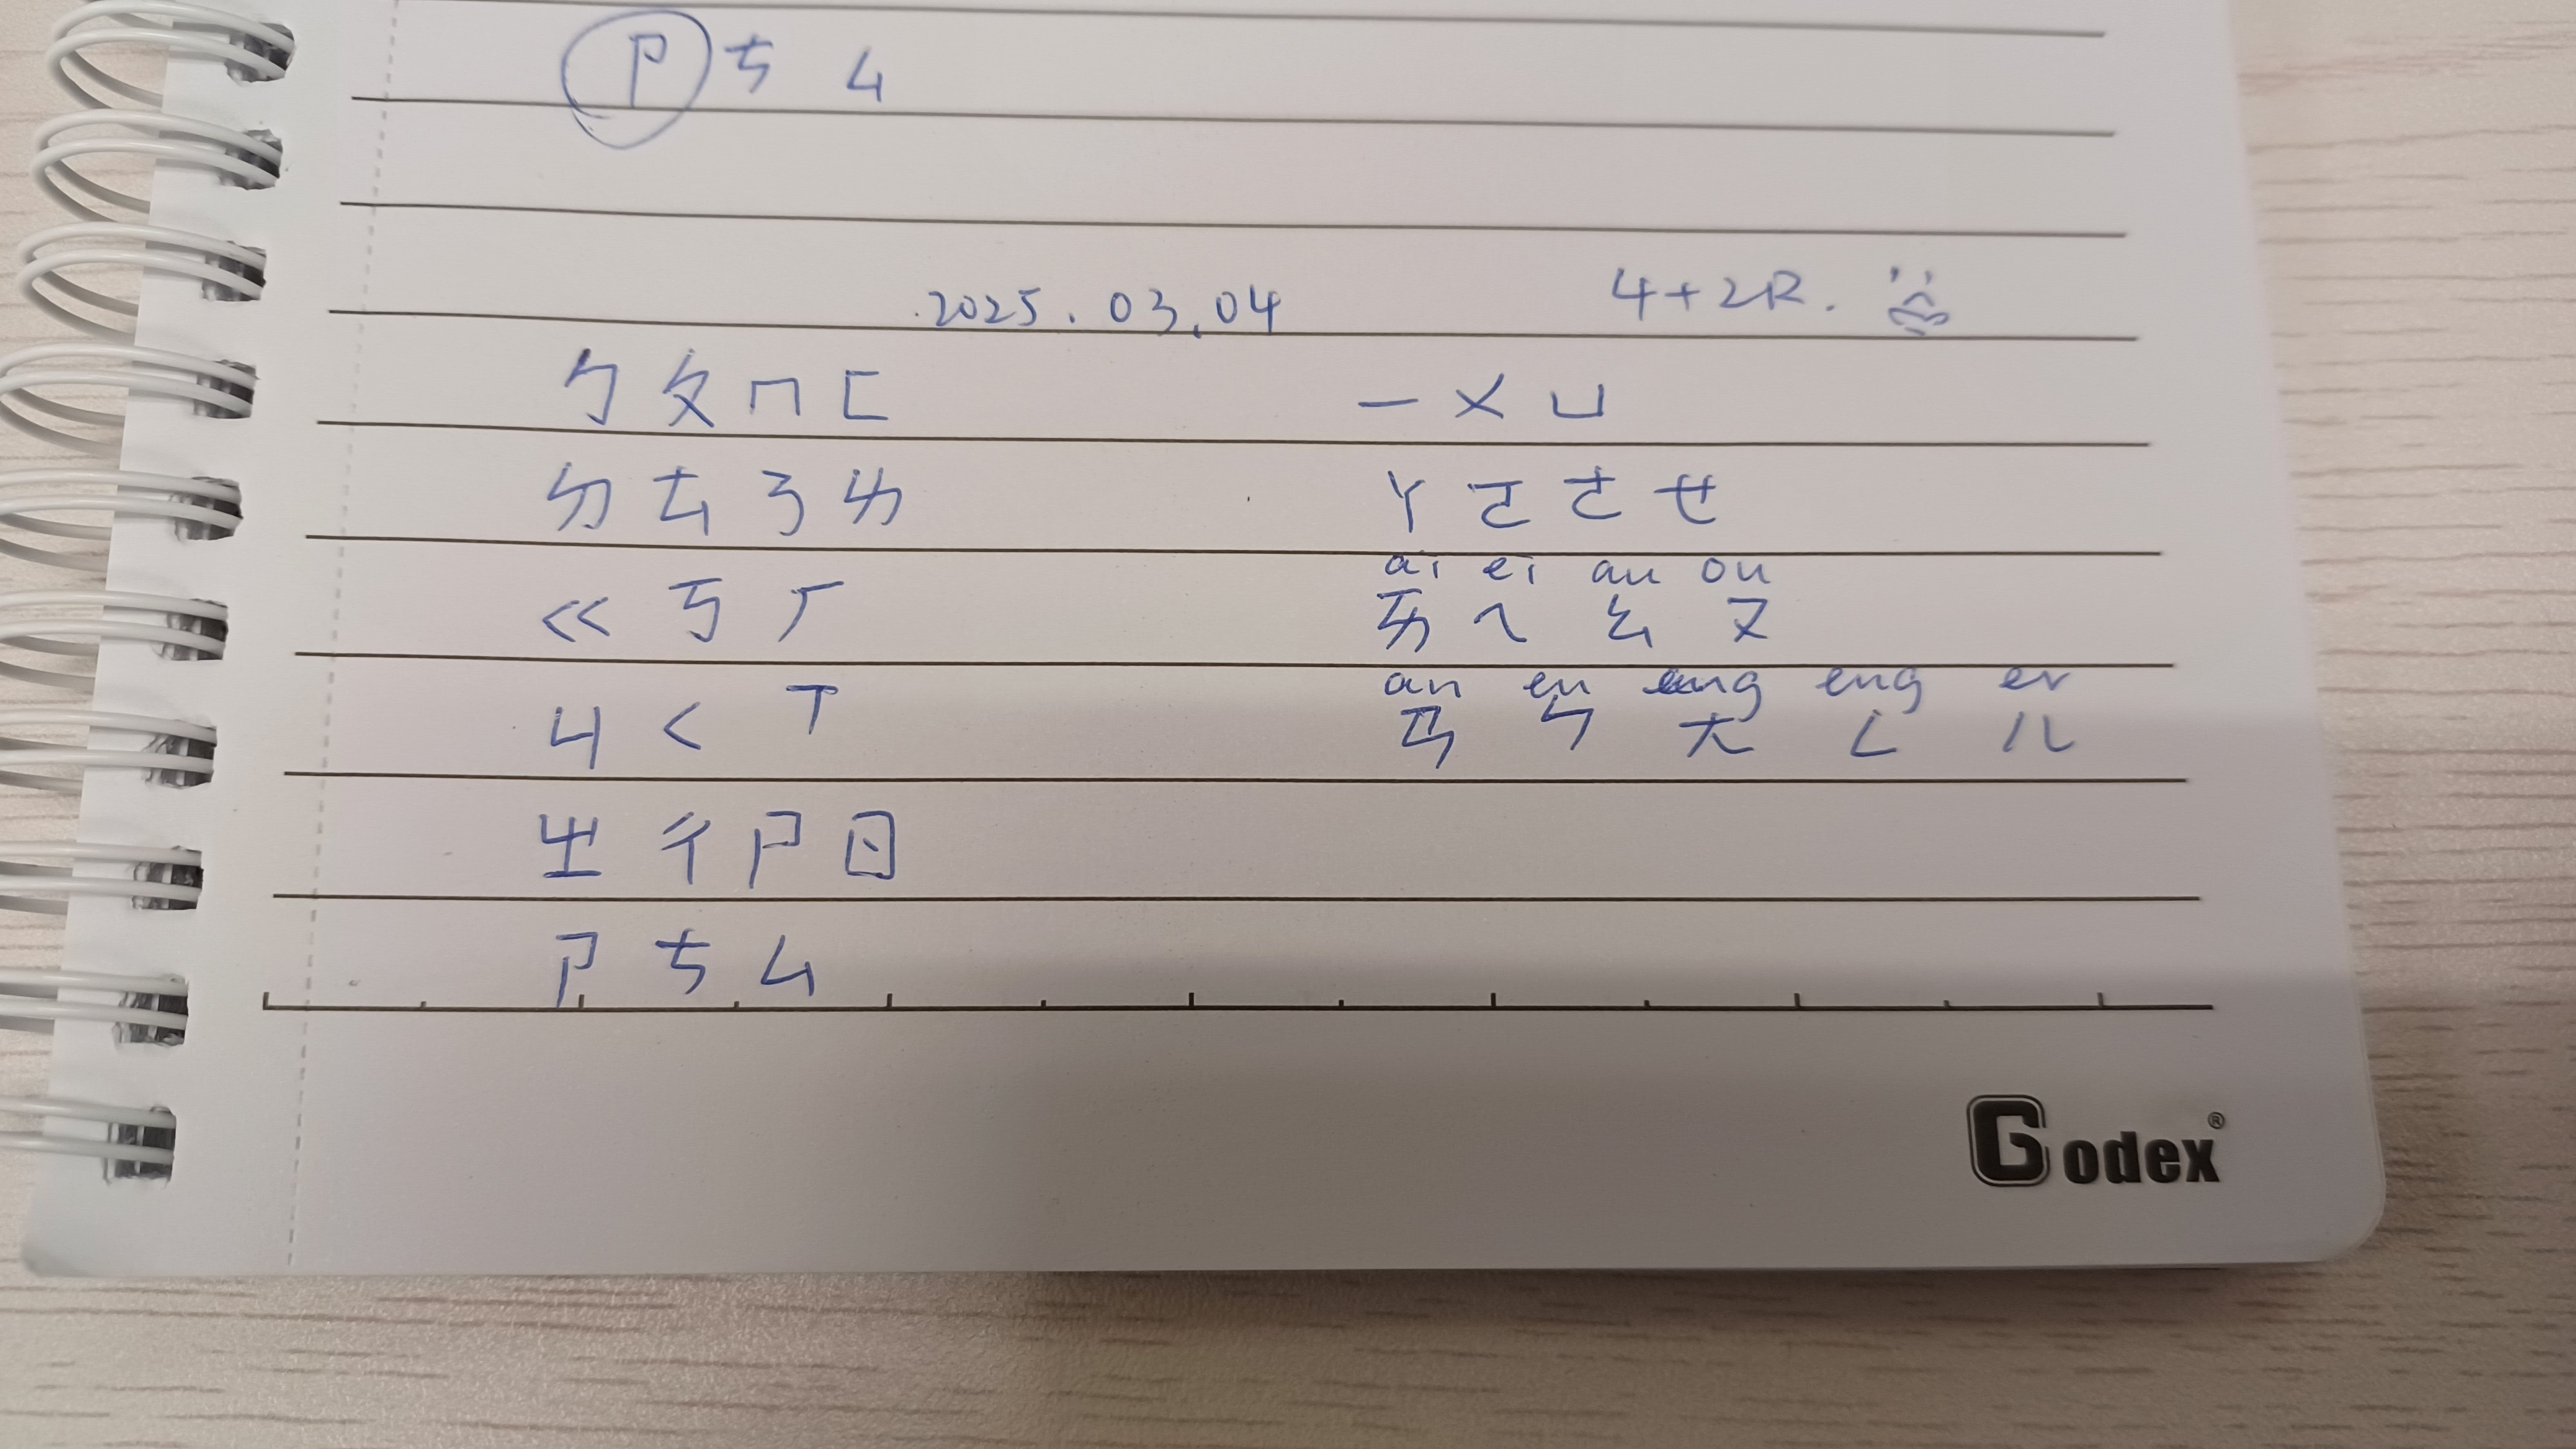 ㄗ ㄘ ㄙ
2025.03.04 4+2R.
ㄅ ㄆ ㄇ ㄈ ㄧ ㄨ ㄩ
ㄉ ㄊ ㄋ ㄌ ㄚ ㄛ ㄜ ㄝ
ai ei au ou
ㄍ ㄎ ㄏ ㄞ ㄟ ㄠ ㄡ
an en ang eng er
ㄐ ㄑ ㄒ ㄢ ㄣ ㄤ ㄥ ㄦ
ㄓ ㄔ ㄕ ㄖ
ㄗ ㄘ ㄙ
Godex®